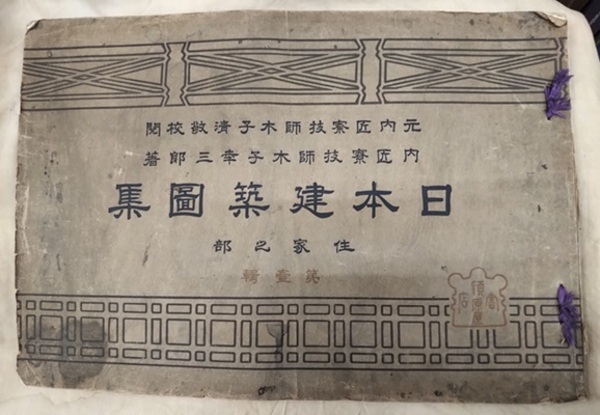 元内匠寮技師木子清敬校閲
内匠寮技師木子幸三郎著
日本建築圖集
住家之部
第壹輯